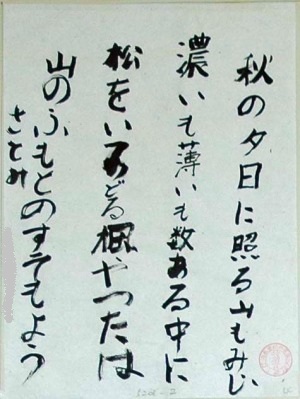 秋の夕日に照る山もみじ
濃いも薄いも数ある中に
松をいろどる楓やつたは
山のふもとのすそもよう
さとみ